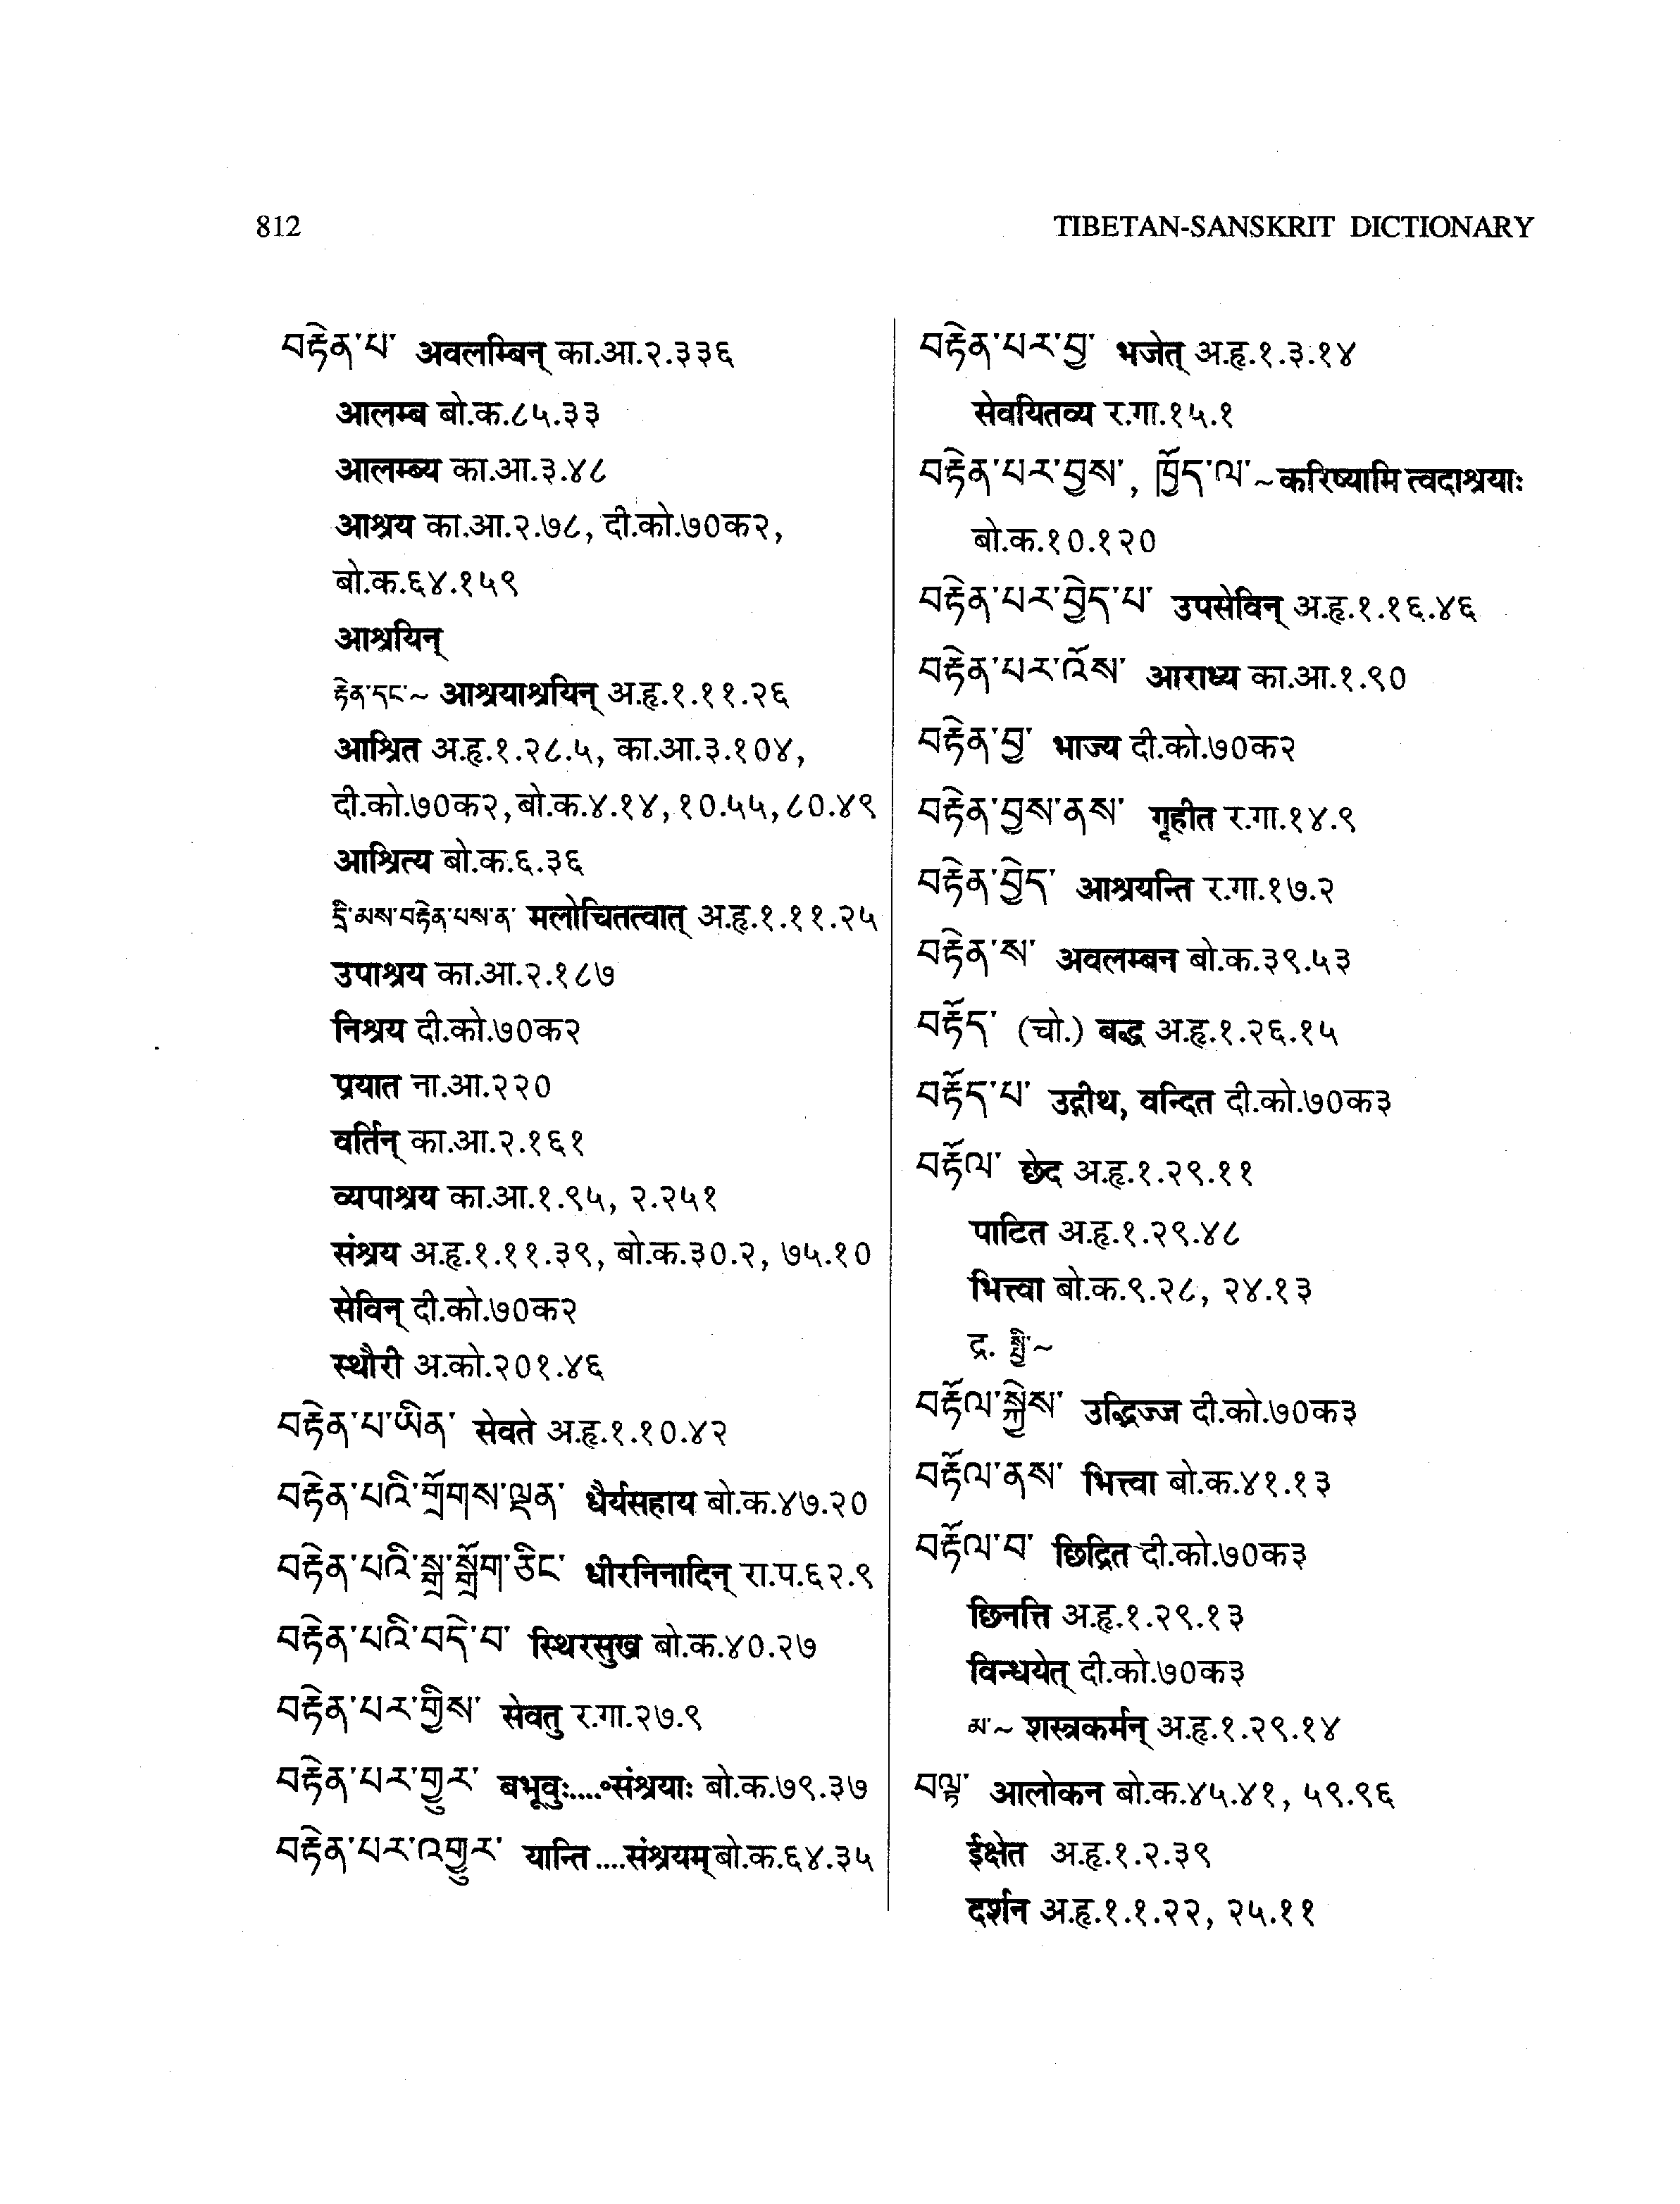 812
TIBETAN-SANSKRIT DICTIONARY
བརྟེན་པ་ अवलम्बिन् का.आ.२.३३६
आलम्ब बो.क.८५.३३
आलम्ब्य का.आ.३.४८
आश्रय का.आ.२.७८, दी.को.७०क२,
बो.क.६४.१५९
आश्रयिन्
རྟེན་དང་~ आश्रयाश्रयिन् अ.हृ.१.११.२६
आश्रित अ.हृ.१.२८.५, का.आ.३.१०४,
दी.को.७०क२, बो.क.४.१४, १०.५५, ८०.४९
आश्रित्य बो.क.६.३६
དྲི་མས་བརྟེན་པས་ན་ मलोचितत्वात् अ.हृ.१.११.२५
उपाश्रय का.आ.२.१८७
निश्रय दी.को.७०क२
प्रयात ना.आ.२२०
वर्तिन् का.आ.२.१६१
व्यपाश्रय का.आ.१.९५, २.२५१
संश्रय अ.हृ.१.११.३९, बो.क.३०.२, ७५.१०
सेविन् दी.को.७०क२
स्थौरी अ.को.२०१.४६
བརྟེན་པ་ཡིན་ सेवते अ.हृ.१.१०.४२
བརྟེན་པའི་གྲོགས་ལྡན་ धैर्यसहाय बो.क.४७.२०
བརྟེན་པའི་སྒྲ་སྒྲོག་ཅིང་ धीरनिनादिन् रा.प.६२.९
བརྟེན་པའི་བདེ་བ་ स्थिरसुख बो.क.४०.२७
བརྟེན་པར་གྱིས་ सेवतु र.गा.२७.९
བརྟེན་པར་གྱུར་ बभूवुः....॰संश्रयाः बो.क.७९.३७
བརྟེན་པར་འགྱུར་ यान्ति ....संश्रयम् बो.क.६४.३५
བརྟེན་པར་བྱ་ भजेत् अ.हृ.१.३.१४
सेवयितव्य र.गा.१५.१
བརྟེན་པར་བྱས་, ཁྱོད་ལ་~ करिष्यामि त्वदाश्रयाः
बो.क.१०.१२०
བརྟེན་པར་བྱེད་པ་ उपसेविन् अ.हृ.१.१६.४६
བརྟེན་པར་འོས་ आराध्य का.आ.१.९०
བརྟེན་བྱ་ भाज्य दी.को.७०क२
བརྟེན་བྱས་ནས་ गृहीत र.गा.१४.९
བརྟེན་བྱེད་ आश्रयन्ति र.गा.१७.२
བརྟེན་ས་ अवलम्बन बो.क.३९.५३
བརྟོད་ (चो.) बद्ध अ.हृ.१.२६.१५
བརྟོད་པ་ उद्गीथ, वन्दित दी.को.७०क३
བརྟོལ་ छेद अ.हृ.१.२९.११
पाटित अ.हृ.१.२९.४८
भित्त्वा बो.क.९.२८, २४.१३
द्र. སྤྱི་~
བརྟོལ་སྐྱེས་ उद्भिज्ज दी.को.७०क३
བརྟོལ་ནས་ भित्त्वा बो.क.४१.१३
བརྟོལ་བ་ छिद्रित दी.को.७०क३
छिनत्ति अ.हृ.१.२९.१३
विन्धयेत् दी.को.७०क३
མ་~ शस्त्रकर्मन् अ.हृ.१.२९.१४
བལྟ་ आलोकन बो.क.४५.४१, ५९.९६
ईक्षेत अ.हृ.१.२.३९
दर्शन अ.हृ.१.१.२२, २५.११